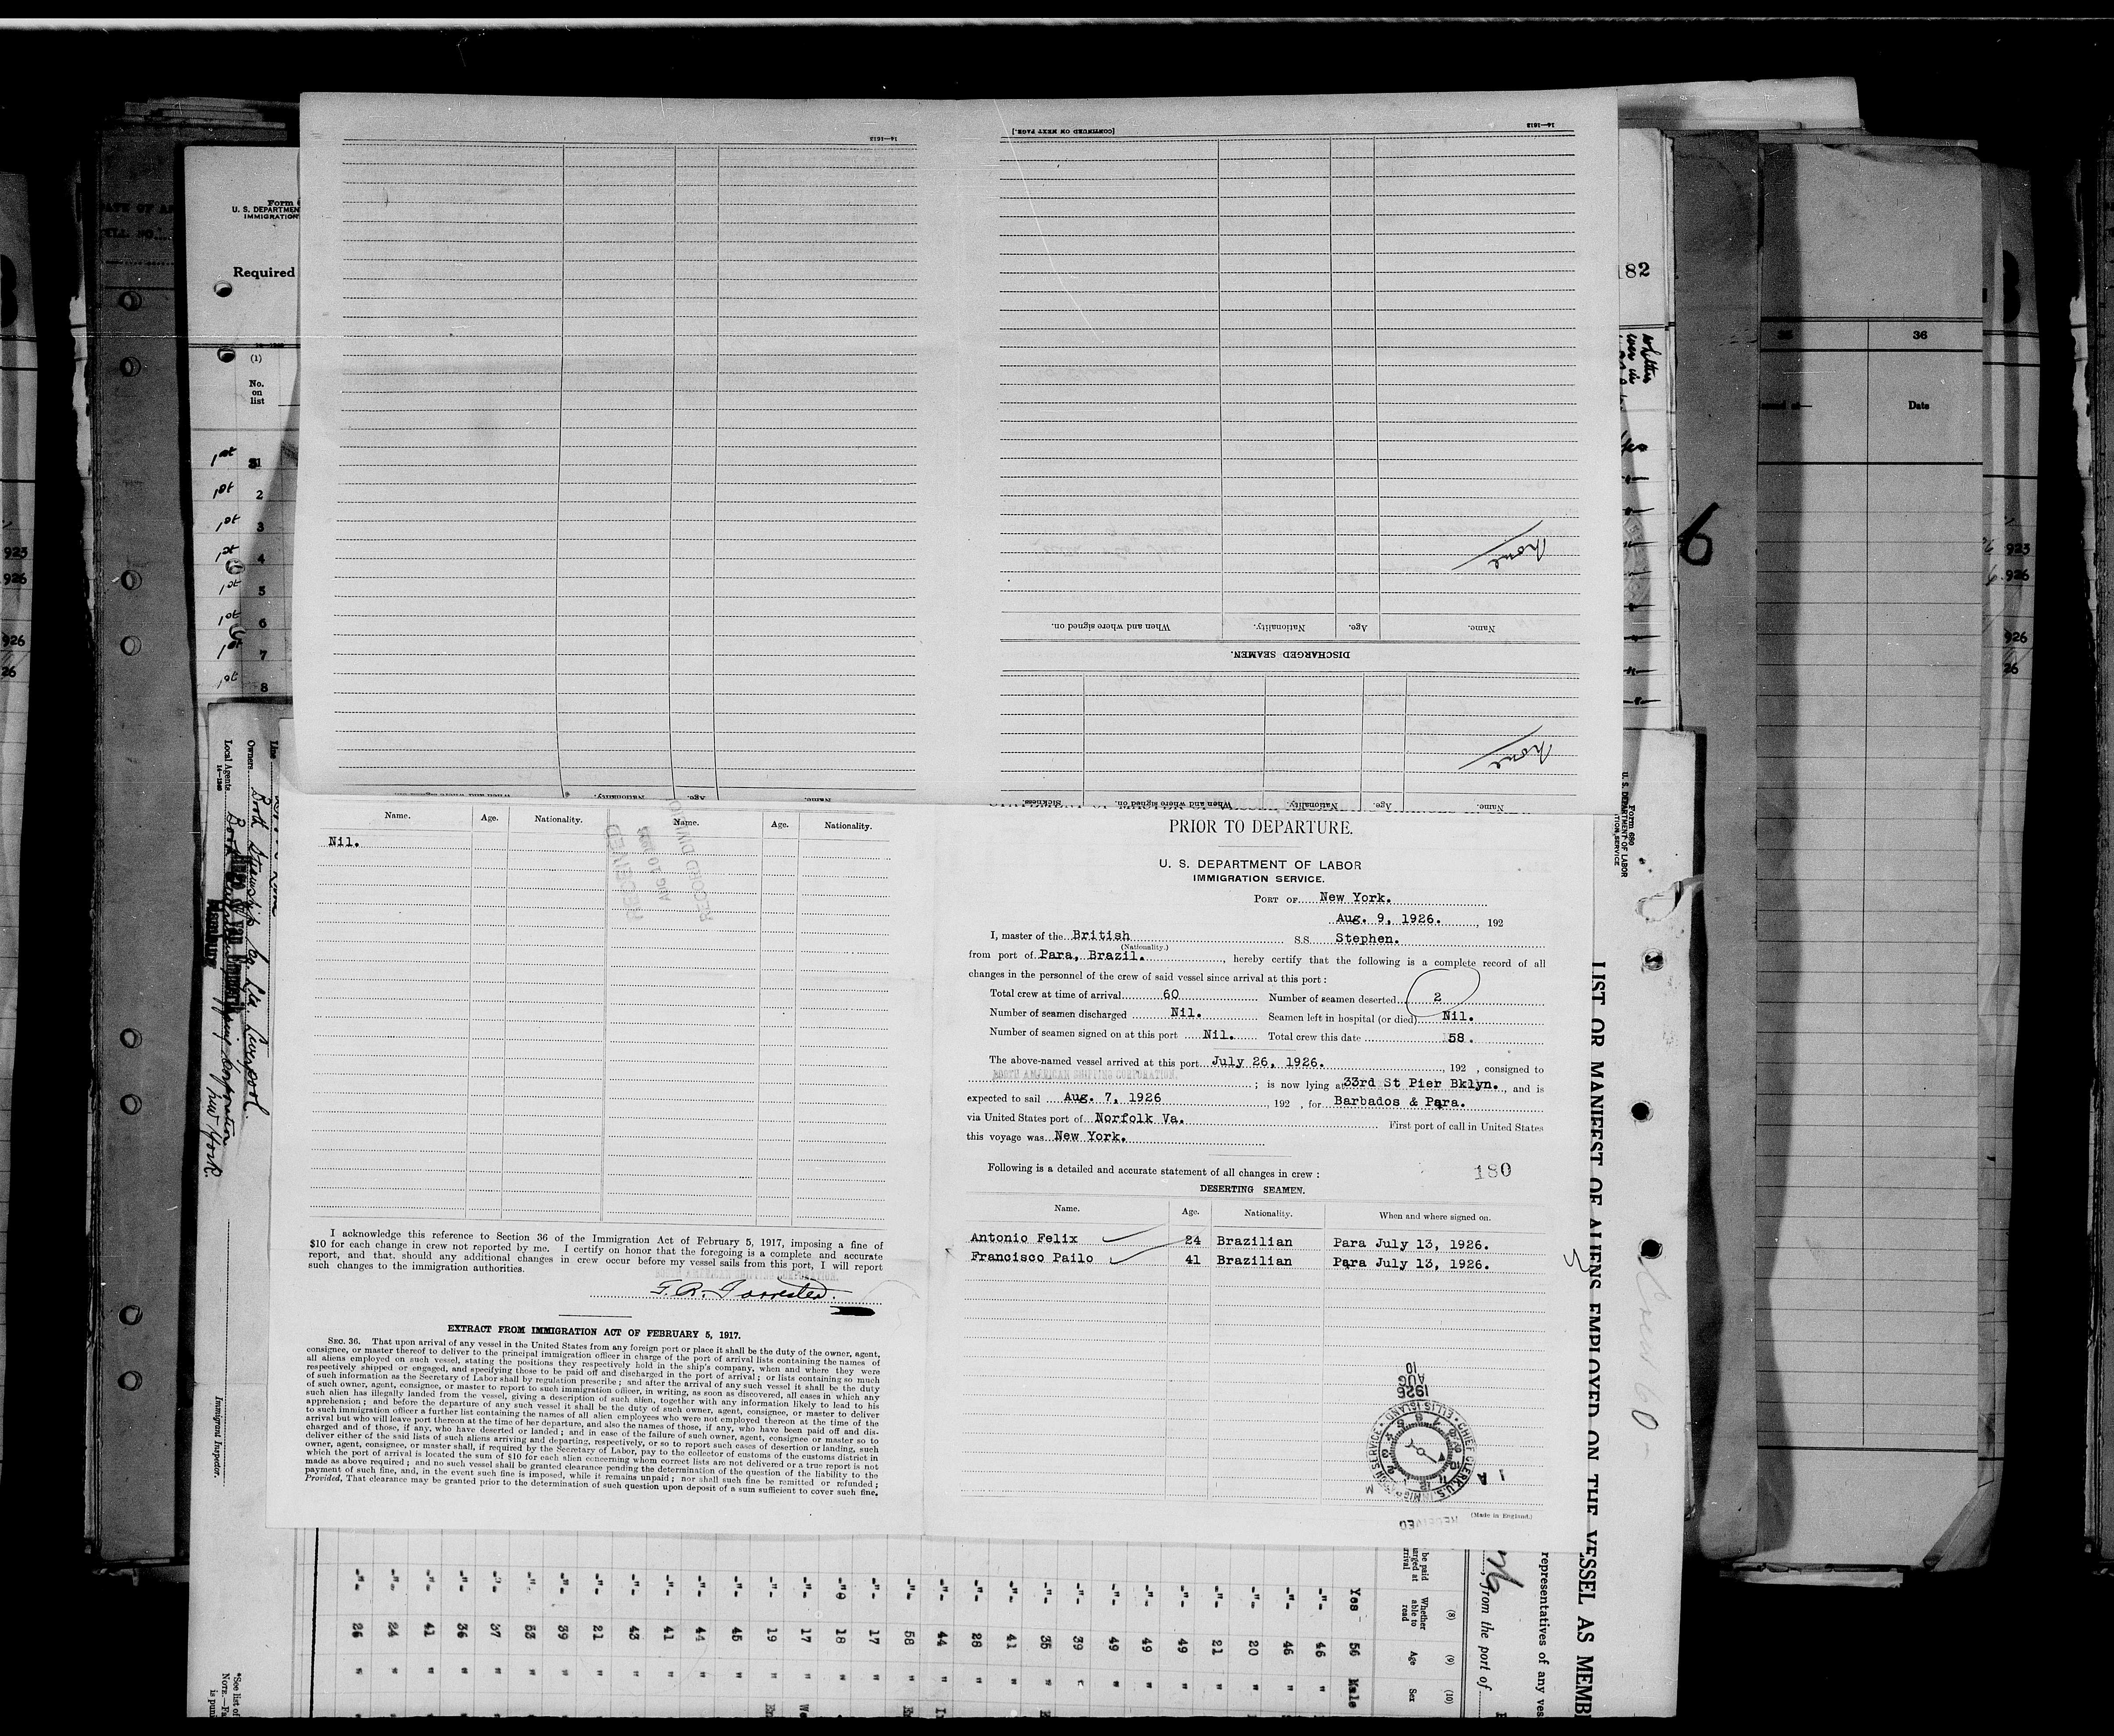 [CONTINUED ON NEXT PAGE.]
14—1613
14—1613
none
Name.
Age.
Nationality.
When and where signed on.
DISCHARGED SEAMEN.
none
Name.
Age.
Nationality.
When and where signed on.
Sickness.
Name.
Age.
Nationality.
When and where signed on.
Name. Age. Nationality. Name. Age. Nationality.
Nil.
RECEIVED
AUG 10 1926
RECORD DIVISION
I acknowledge this reference to Section 36 of the Immigration Act of February 5, 1917, imposing a fine of
$10 for each change in crew not reported by me. I certify on honor that the foregoing is a complete and accurate
report, and that, should any additional changes in crew occur before my vessel sails from this port, I will report
such changes to the immigration authorities.
AMERICAN SHIPPING CORPORATION.
F. A. Forrester.
EXTRACT FROM IMMIGRATION ACT OF FEBRUARY 5, 1917.
SEC. 36. That upon arrival of any vessel in the United States from any foreign port or place it shall be the duty of the owner, agent,
consignee, or master thereof to deliver to the principal immigration officer in charge of the port of arrival lists containing the names of
all aliens employed on such vessel, stating the positions they respectively hold in the ship's company, when and where they were
respectively shipped or engaged, and specifying those to be paid off and discharged in the port of arrival; or lists containing so much
of such information as the Secretary of Labor shall by regulation prescribe; and after the arrival of any such vessel it shall be the duty
of such owner, agent, consignee, or master to report to such immigration officer, in writing, as soon as discovered, all cases in which any
such alien has illegally landed from the vessel, giving a description of such alien, together with any information likely to lead to his
apprehension; and before the departure of any such vessel it shall be the duty of such owner, agent, consignee, or master to deliver
to such immigration officer a further list containing the names of all alien employees who were not employed thereon at the time of the
arrival but who will leave port thereon at the time of her departure, and also the names of those, if any, who have been paid off and dis-
charged and of those, if any, who have deserted or landed; and in case of the failure of such owner, agent, consignee or master so to
deliver either of the said lists of such aliens arriving and departing, respectively, or so to report such cases of desertion or landing, such
owner, agent, consignee, or master shall, if required by the Secretary of Labor, pay to the collector of customs of the customs district in
which the port of arrival is located the sum of $10 for each alien concerning whom correct lists are not delivered or a true report is not
made as above required; and no such vessel shall be granted clearance pending the determination of the question of the liability to the
payment of such fine, and, in the event such fine is imposed, while it remains unpaid; nor shall such fine be remitted or refunded;
Provided, That clearance may be granted prior to the determination of such question upon deposit of a sum sufficient to cover such fine.
PRIOR TO DEPARTURE.
U. S. DEPARTMENT OF LABOR
IMMIGRATION SERVICE.
PORT OF New York.
Aug. 9, 1926. , 192
I, master of the British S.S. Stephen.
(Nationality.)
from port of Para, Brazil. , hereby certify that the following is a complete record of all
changes in the personnel of the crew of said vessel since arrival at this port:
Total crew at time of arrival 60 Number of seamen deserted 2
Number of seamen discharged Nil. Seamen left in hospital (or died) Nil.
Number of seamen signed on at this port Nil. Total crew this date 58.
The above-named vessel arrived at this port July 26, 1926. , 192 , consigned to
NORTH AMERICAN SHIPPING CORPORATION. ; is now lying at 33rd St Pier Bklyn. , and is
expected to sail Aug. 7, 1926 , 192 , for Barbados & Para.
via United States port of Norfolk Va. First port of call in United States
this voyage was New York.
Following is a detailed and accurate statement of all changes in crew: 180
DESERTING SEAMEN.
Name. Age. Nationality. When and where signed on.
Antonio Felix 24 Brazilian Para July 13, 1926.
Francisco Pailo 41 Brazilian Para July 13, 1926.
1926
AUG
10
CHIEF CLERK, U.S. IMMIGRATION SERVICE • ELLIS ISLAND
RECEIVED
(Made in England.)
U. S. DEPARTMEN
IMMIGRATION
Required
(1)
No.
on
list
1st 1
1st 2
1st 3
1st 4
1st 5
1st 6
1st 7
1st 8
Line
Owners Booth Steamship Co. Ltd. Liverpool.
Local Agents
New York.
Immigrant Inspector.
*See list of
182
6
36
Date
Form 680
U. S. DEPARTMENT OF LABOR
LIST OR MANIFEST OF ALIENS EMPLOYED ON THE VESSEL AS MEMB
representatives of any ves
, from the port of
(8) Whether able to read
(9) Age
(10) Sex
Yes 56 Male
-"- 46 "
-"- 46 "
-"- 20 "
-"- 21 "
-"- 49 "
-"- 49 "
-"- 49 "
-"- 39 "
-"- 35 "
-"- 41 "
-"- 28 "
-"- 44 "
-"- 58 "
-"- 17 "
-"- 18 "
-"- 17 "
-"- 19 "
-"- 45 "
-"- 44 "
-"- 41 "
-"- 43 "
-"- 21 "
-"- 39 "
-"- 53 "
-"- 37 "
-"- 36 "
-"- 41 "
-"- 24 "
-"- 26 "